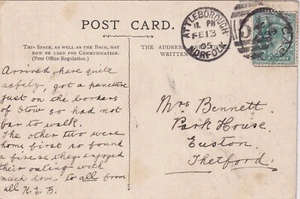 POST CARD.
THIS SPACE, AS WELL AS THE BACK, MAY
NOW BE USED FOR COMMUNICATION.
(Post Office Regulation.)
THE ADDRESS
WRITTEN
ATTLEBOROUGH
PM
FE 13
05
NORFOLK
Arrived here quite
safely, got a puncture
just on the borders
of Stow so had not
far to walk.
The other two were
home first no found
they enjoyed
their outing with
much love to all from
all
Mrs Bennett.
Park House.
Euston.
Thetford.